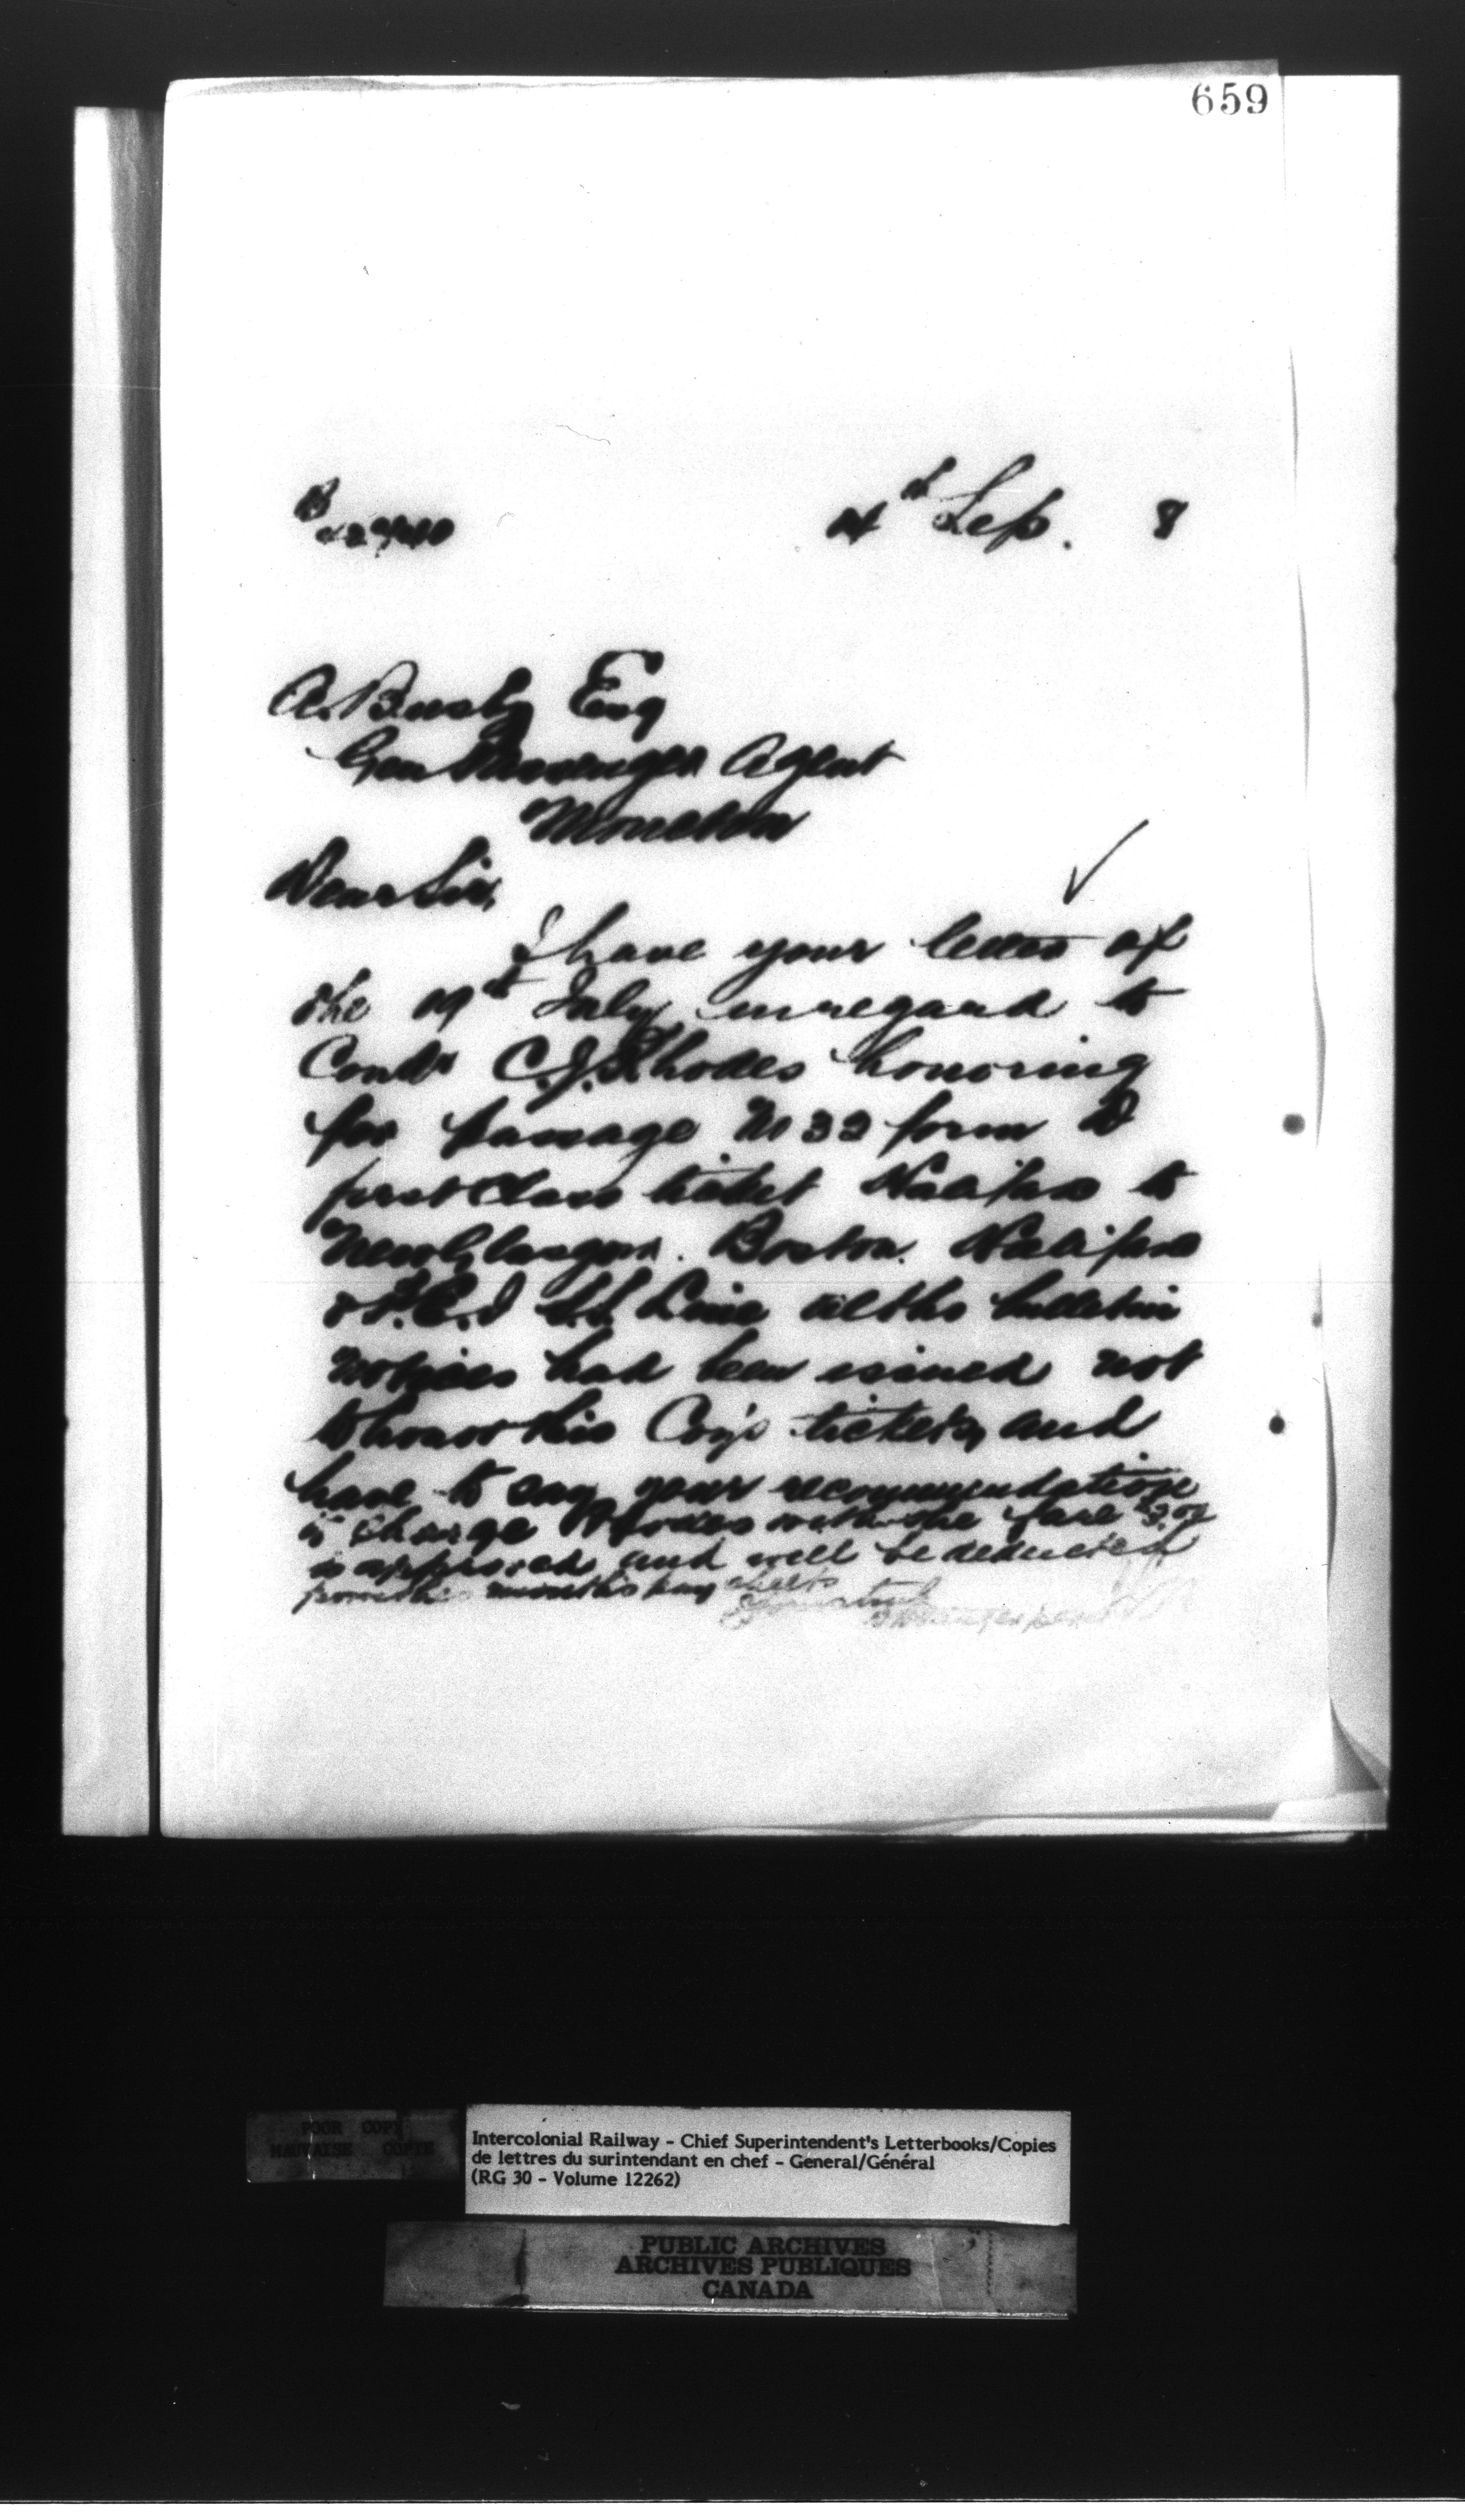 659
4th Sep. 8
A. Busby Esq
Gen Passenger Agent
Moncton
Dear Sir,
I have your letter of
the 19th July in regard to
Condr C. J. Rhodes honoring
for passage No 33 form D
first Class ticket Halifax to
New Glasgow. Boston. Halifax
& P.E.I S.S. Line altho bulletin
notices had been issued not
to honor this Coy's tickets, and
have to say your recommendation
to charge Rhodes with the fare
is approved and will be deducted
from the months pay sheets
Yours truly
POOR COPY
MAUVAISE COPIE
Intercolonial Railway - Chief Superintendent's Letterbooks/Copies
de lettres du surintendant en chef - General/Général
(RG 30 - Volume 12262)
PUBLIC ARCHIVES
ARCHIVES PUBLIQUES
CANADA